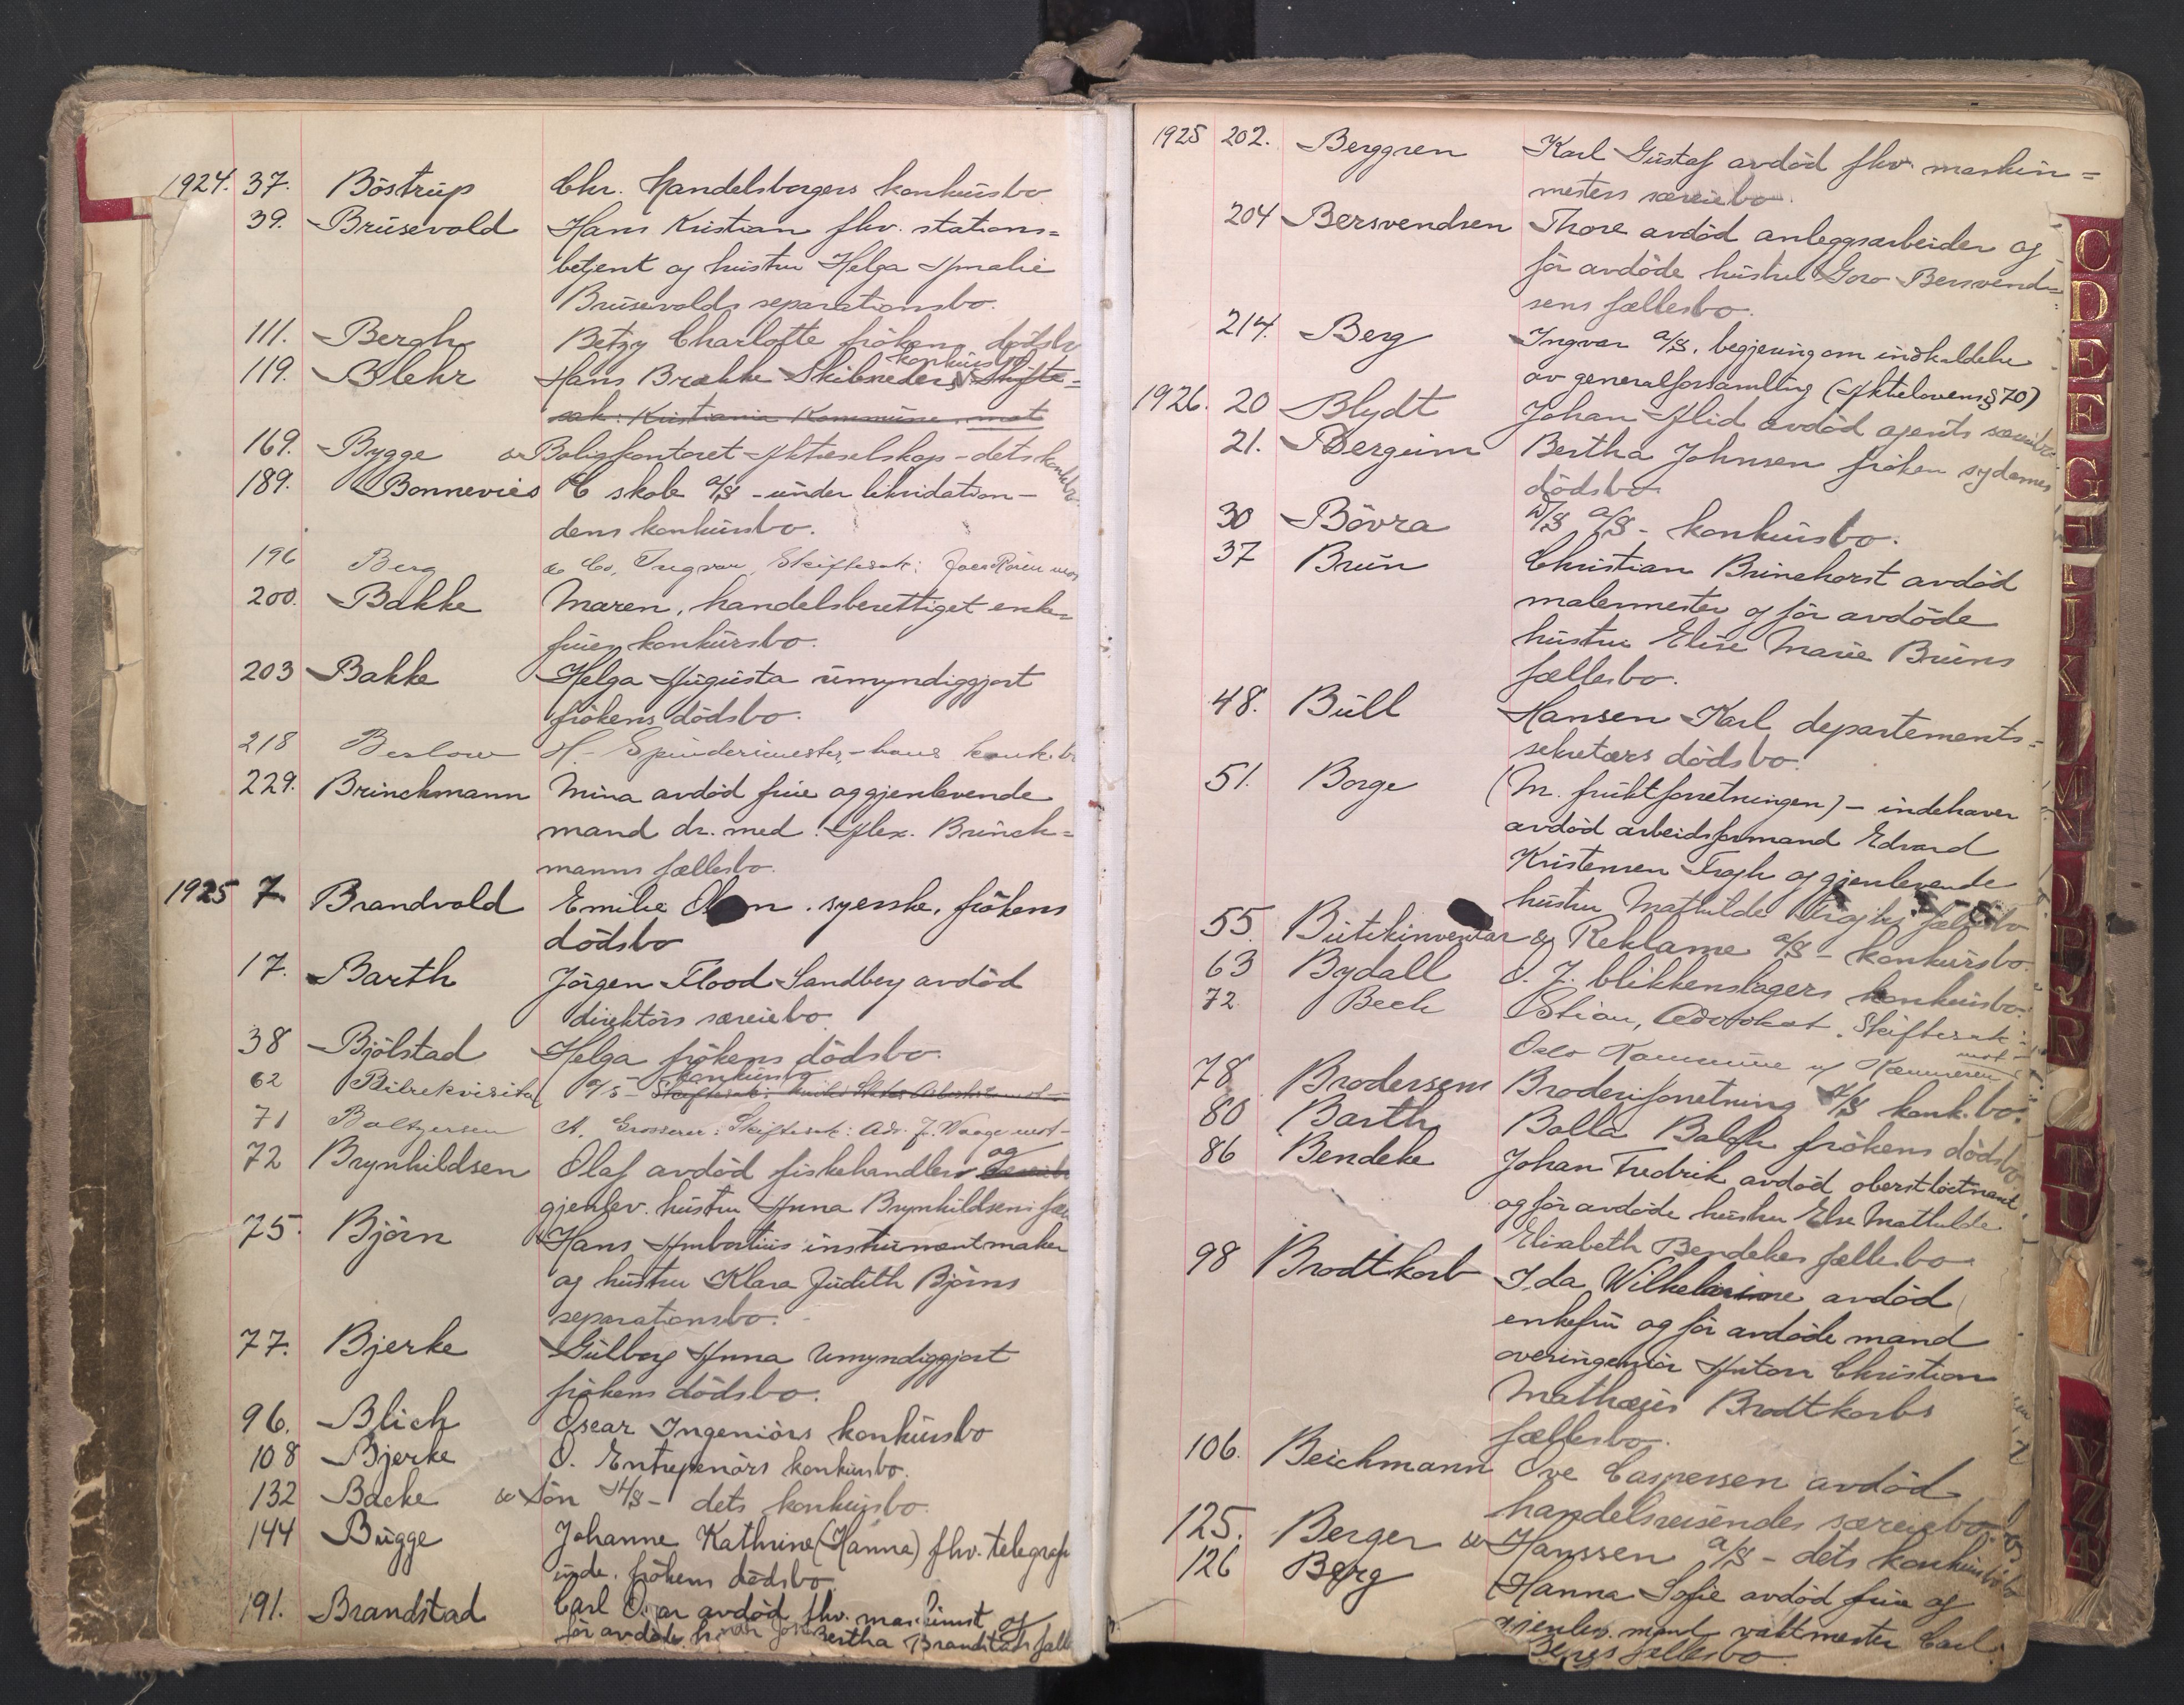 1924. 37. Böstrup Chr. Handelsborgers konkursbo
39. Brüsevold Hans Kristian fhv. stations=
betjent og hustru Helga Amalie
Brüsevolds separationsbo.
111. Bergh Betzy Charlotte frökens dödsb
konkursbo
119. Blehr Hans Brække Skibsreders Skifte=
sak: Kristiania Kommune mot
169. Bygge & Boligkontoret Aktieselskap - dets konkb
189. Bonnevies C skole A/S - under likvidation -
dens konkursbo.
196 Berg & Co, Ingvar, Skiftesak: mot
200. Bakke Maren, handelsberettiget enke=
frues konkursbo.
203 Bakke Helga Augusta umyndiggjort
frökens dödsbo.
218 Beslow H. Spinderimester, - hans konk. b
229. Brinchmann Mina avdöd frue og gjenlevende
mand dr. med. Alex. Brinch=
manns fællesbo.
1925 7 Brandvold Emilie Olsen. syerske, frökens
dödsbo
17. Barth Jörgen Flood Sandberg avdöd
direktörs særeiebo
38 Bjölstad Helga frökens dödsbo.
konkursbo
62 Bilrekvisita A/S - Skiftesak:
71 Baltzersen A. Grosserer: Skiftesak: Adv. F. Waage mot -
og
72 Brynhildsen Olaf avdöd fiskehandlers
gjenlev. hustru Anna Brynhildsens fæ
75. Björn Hans Ambortius instrumentmaker
og hustru Klara Judith Björns
separationsbo.
77. Bjerke Gulborg Anna Umyndiggjort
frökens dödsbo.
96. Blich Oscar Ingeniörs konkursbo
108 Bjerke O. Entrepenörs konkursbo.
132 Backe & Sön A/S - dets konkursbo.
144 Bugge Johanne Kathrine (Hanna) fhv. telegraf
inde, frökens dödsbo
191. Brandstad Carl Oscar avdöd fhv. maskinist og
för avdöde Bertha Brandstads fælle
1925 202. Berggren Karl Gustaf avdöd fhv. maskin=
mesters særeiebo
204 Bersvendsen Thore avdöd anleggsarbeider og
för avdöde hustru Goro Bersvend=
sens fællesbo.
214. Berg Ingvar A/S. begjering om indkaldelse
av generalforsamling (Aktielovens § 70)
1926. 20 Blydt Johan Alid avdöd agents særeiebo
21. Bergum Bertha Johnsen fröken sydames
dödsbo
30 Bövra D/S A/S - konkursbo.
37 Brun Christian Brinchorst avdöd
malermester og för avdöde
hustru Elise Marie Bruns
fællesbo.
48. Bull Hansen Karl departements=
sekretærs dödsbo.
51. Borge (M. fruktforretningen) - indehaver
avdöd arbeidsformand Edvard
Kristensen og gjenlevende
hustru Mathilde fællesbo
55. Butikinventar & Reklame A/S - konkursbo.
63 Bydall O. J. blikkenslagers konkursbo.
72. Bech Stian, Advokat. Skiftesak:
Oslo Kommune v/ Kæmneren mot
78 Brodersens Broderiforretning A/S konk.bo.
80 Barth Bolla Balch frökens dödsbo
86 Bendeke Johan Fredrik avdöd oberstlöitnant
og för avdöde hustru Else Mathilde
Elisabeth Bendekes fællesbo
98 Brodtkorb Ida Wilhelmine avdöd
enkefru og för avdöde mand
overingeniör Anton Christian
Mathæus Brodtkorbs
fællesbo.
106. Beichmann Ove Caspersen avdöd
handelsreisendes særeiebo
125. Berger & Hanssen A/S - dets konkursbo
126 Berg Hanna Sofie avdöd frue og
gjenlev. mand vaktmester Carl
Bergs fællesbo
C
D
E
F
G
H
I
J
K
N
R
T
U